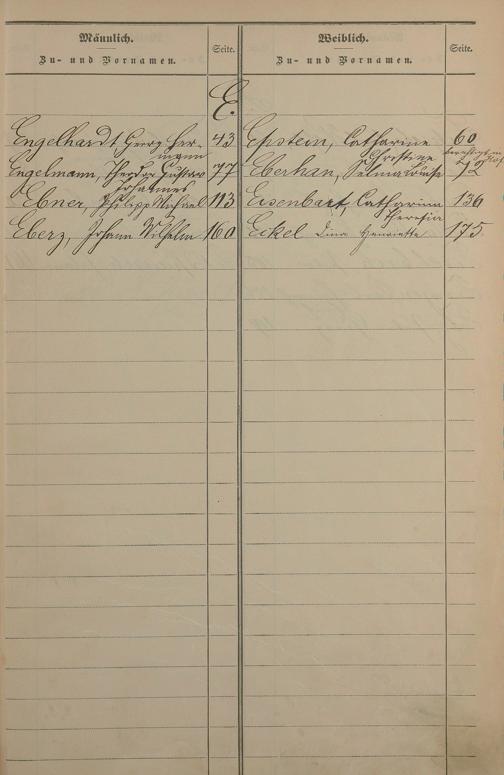 Männlich.
Zu- und Vornamen.
Seite.
Weiblich.
Zu- und Vornamen.
Seite.
E.
Engelhardt, Georg Her-
mann 43
Engelmann, Theodor Gustav
Johannes 77
Ebner, Philipp Michael 113
Eberz, Johann Wilhelm 160
Epstein, Catharine
Christine 60
Eberhan, Selma Louise 72
Eisenbart, Catharina
Theresia 136
Eckel Dina Henriette 175